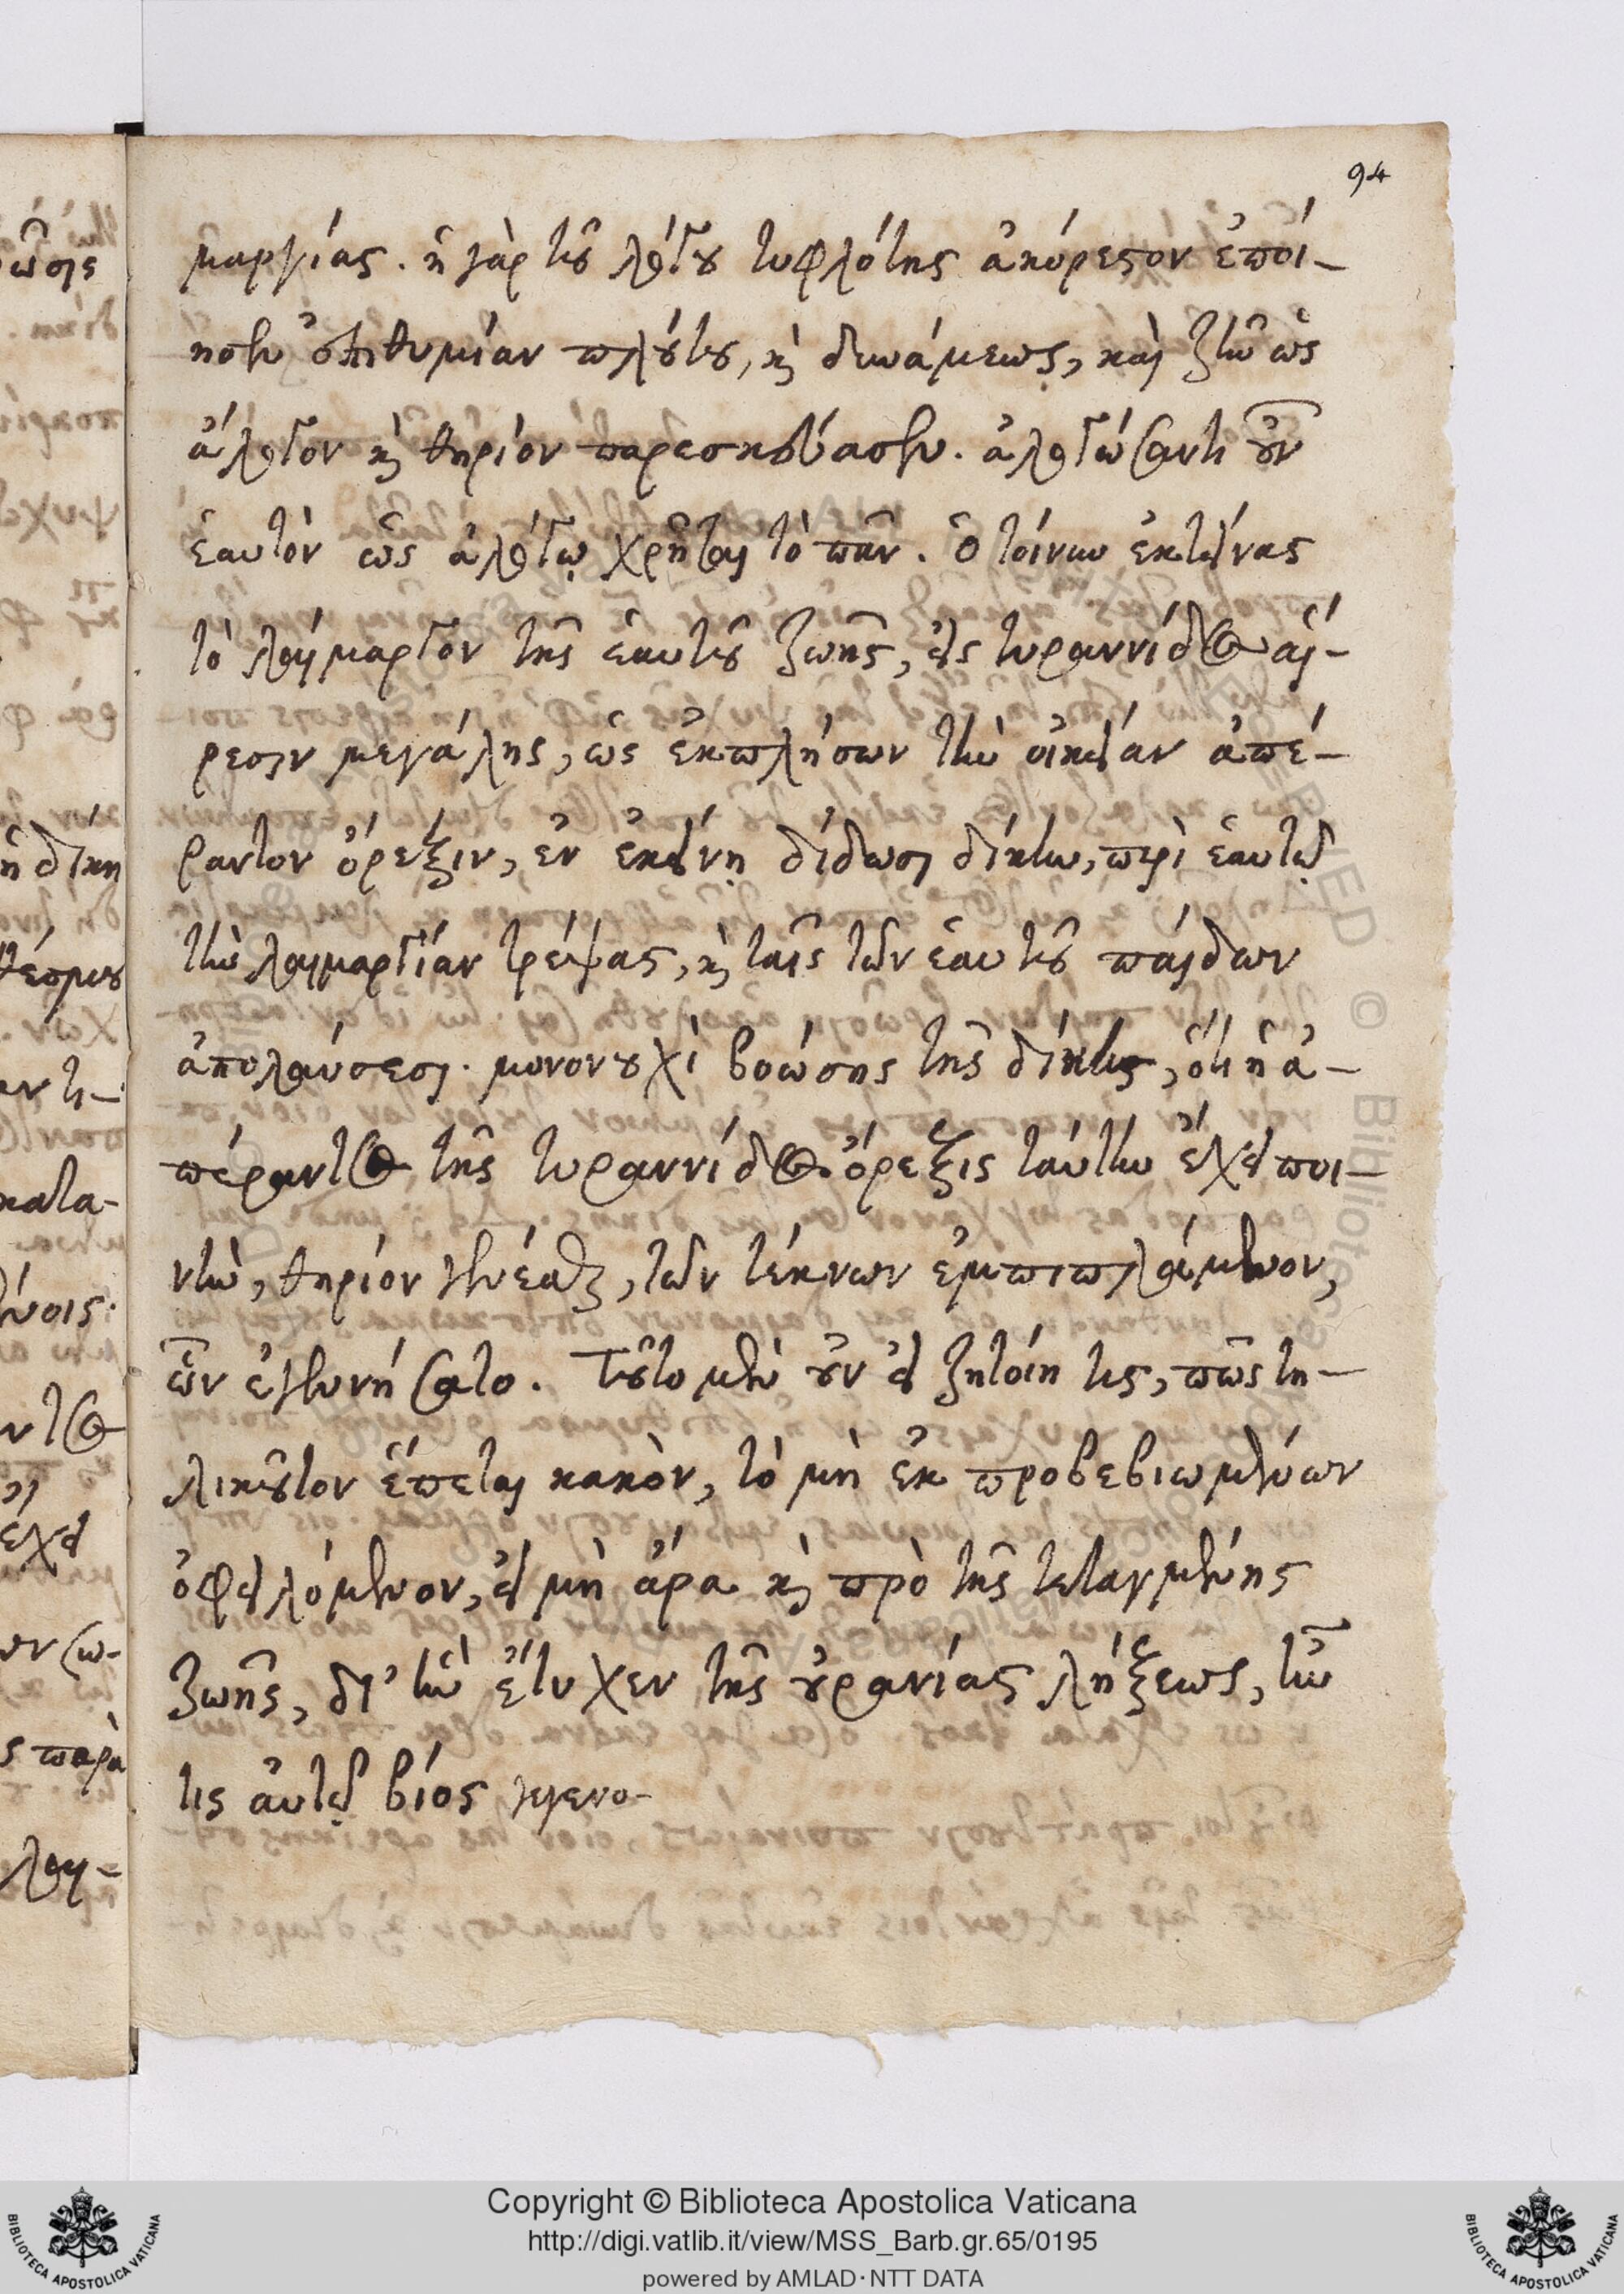 94
μαργίας. ἡ γὰρ τοῦ λόγου τυφλότης ἀκόρεστον ἐποί-
ησεν ἐπιθυμίαν πλούτου, καὶ δυνάμεως, καὶ ζῆν ὡς
ἄλογον καὶ θηρίον παρεσκεύασεν. ἀλογώσαντι οὖν
ἑαυτὸν ὡς ἀλόγῳ χρῆται τὸ πᾶν. ὁ τοίνυν ἐκτείνας
τὸ λαίμαργον τῆς ἑαυτοῦ ζωῆς, εἰς τυραννίδος αἵ-
ρεσιν μεγάλης, ὡς ἐκπλήσων τὴν οἰκείαν ἀπέ-
ραντον ὄρεξιν, ἐν ἐκείνῃ δίδωσι δίκην, περὶ ἑαυτῷ
τὴν λαιμαργίαν τρέψας, καὶ ταῖς τῶν ἑαυτοῦ παίδων
ἀπολαύσεσι. μονονουχὶ βοώσης τῆς δίκης, ὅτι ἡ ἀ-
πέραντος τῆς τυραννίδος ὄρεξις ταύτην ἔχει ποι-
νὴν, θηρίον γενέσθαι, τῶν τέκνων ἐμπιπλάμενον,
ὧν ἐγεννήσατο. Τοῦτο μὲν οὖν εἰ ζητοίη τις, πῶς τη-
λικοῦτον ἕπεται κακὸν, τὸ μὴ ἐκ προβεβιωμένων
ὀφειλόμενον, εἰ μὴ ἄρα καὶ πρὸ τῆς τεταγμένης
ζωῆς, δι' ἣν ἔτυχεν τῆς οὐρανίας λήξεως, ἦν
τις αὐτῷ βίος γεγενο-
Copyright © Biblioteca Apostolica Vaticana
http://digi.vatlib.it/view/MSS_Barb.gr.65/0195
powered by AMLAD · NTT DATA
BIBLIOTECA APOSTOLICA VATICANA
BIBLIOTECA APOSTOLICA VATICANA